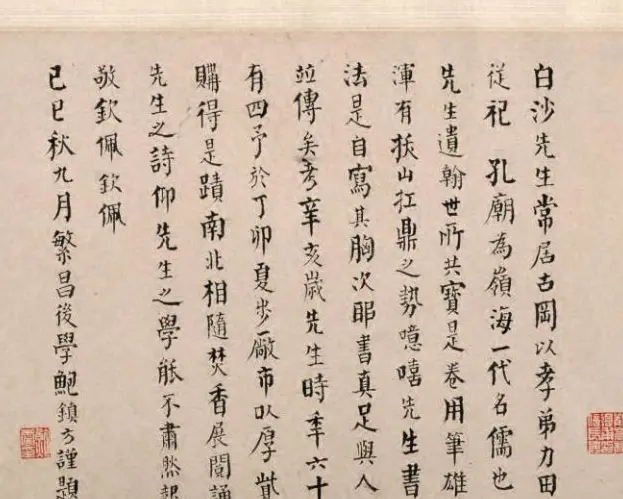 白沙先生常居古岡以孝弟力田
從祀 孔廟為嶺海一代名儒也
先生遺翰世所共寶是卷用筆雄
渾有拔山扛鼎之勢噫嘻先生書
法是自寫其胸次耶書真足與人
並傳矣考辛亥歲先生時年六十
有四予於丁卯夏步廠市以厚貲
購得是蹟南北相隨焚香展閱誦
先生之詩仰先生之學能不肅然起
敬欽佩欽佩
己巳秋九月繁昌後學鮑鎮方謹題